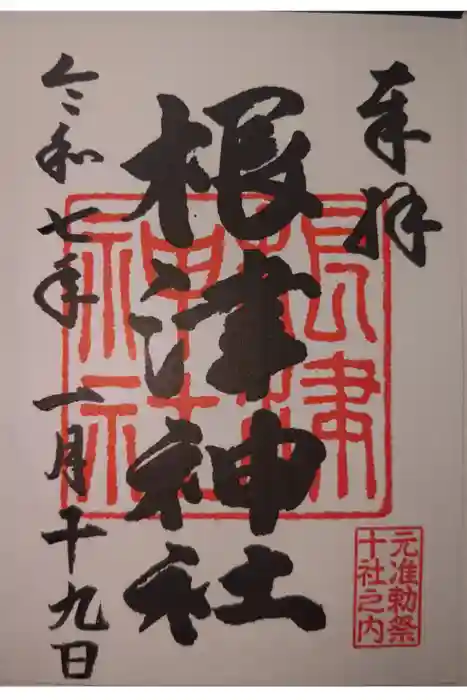 奉拝
根津神社
令和七年一月十九日
根津
神社
元准勅祭
十社之内